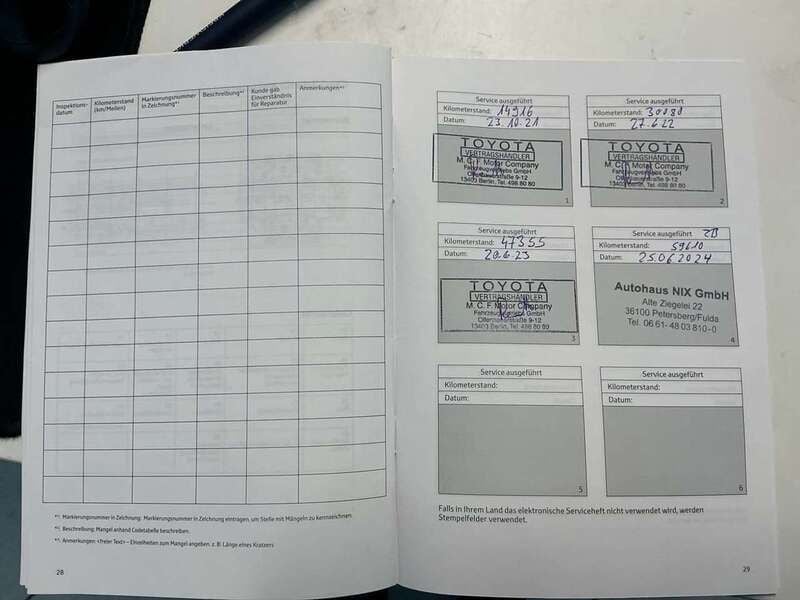 Inspektions-
datum
Kilometerstand
(km/Meilen)
Markierungsnummer
in Zeichnung*¹
Beschreibung*²
Kunde gab
Einverständnis
für Reparatur
Anmerkungen*³
*¹: Markierungsnummer in Zeichnung: Markierungsnummer in Zeichnung eintragen, um Stelle mit Mängeln zu kennzeichnen.
*²: Beschreibung: Mangel anhand Codetabelle beschreiben.
*³: Anmerkungen: <freier Text> – Einzelheiten zum Mangel angeben, z. B. Länge eines Kratzers
28
Service ausgeführt
Kilometerstand: 14916
Datum: 23.10.21
TOYOTA
VERTRAGSHÄNDLER
M. C. F. Motor Company
Fahrzeugvertriebs GmbH
13403 Berlin, Tel. 498 80 80
1
Service ausgeführt
Kilometerstand: 30080
Datum: 27.6.22
TOYOTA
VERTRAGSHÄNDLER
M. C. F. Motor Company
Fahrzeugvertriebs GmbH
13403 Berlin, Tel. 498 80 80
2
Service ausgeführt
Kilometerstand: 47355
Datum: 20.6.23
TOYOTA
VERTRAGSHÄNDLER
M. C. F. Motor Company
Fahrzeugvertriebs GmbH
13403 Berlin, Tel. 498 80 80
3
Service ausgeführt
Kilometerstand: 59610
Datum: 25.06.2024
Autohaus NIX GmbH
Alte Ziegelei 22
36100 Petersberg/Fulda
Tel. 06 61- 48 03 810-0
4
Service ausgeführt
Kilometerstand:
Datum:
5
Service ausgeführt
Kilometerstand:
Datum:
6
Falls in Ihrem Land das elektronische Serviceheft nicht verwendet wird, werden
Stempelfelder verwendet.
29